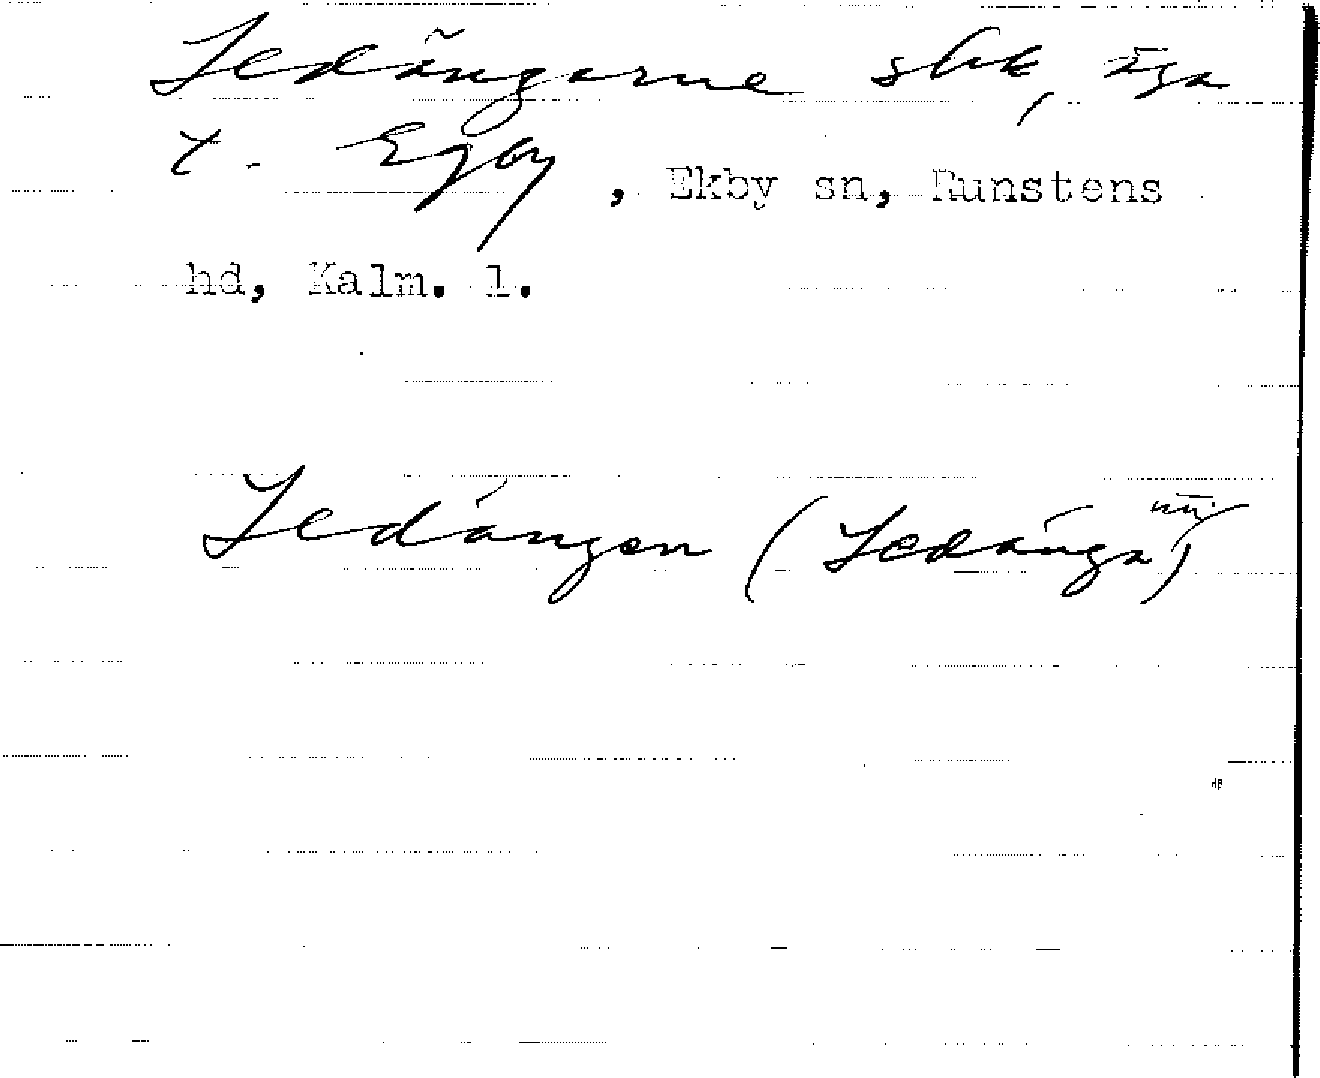 Ledängarne shk, äga
t. Egby, Ekby sn, Runstens
hd, Kalm. l.
Ledängen (Ledänga)